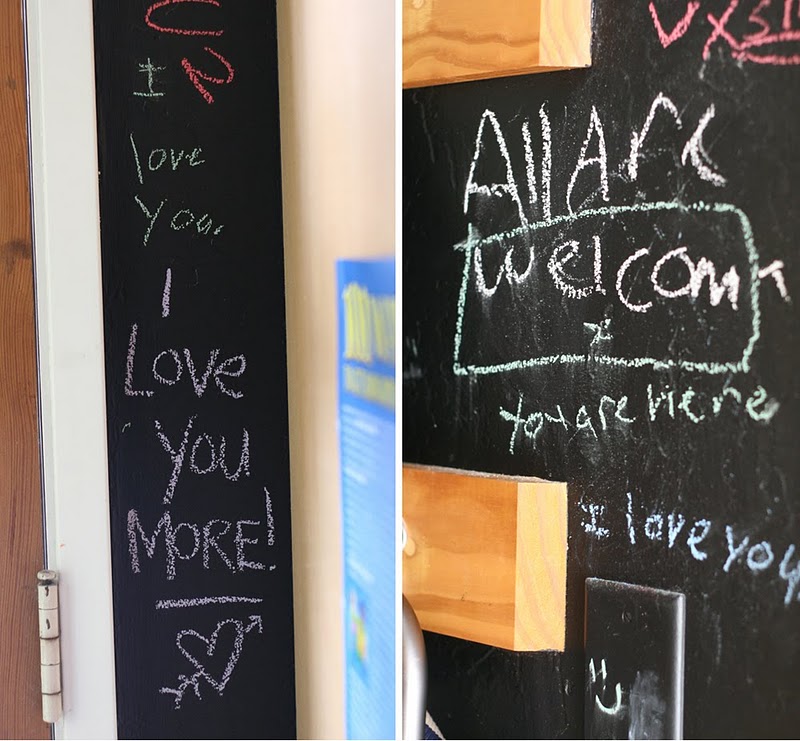 I
love
you
I
Love
You
MORE!
All Are
Welcome
You are Here
I love you